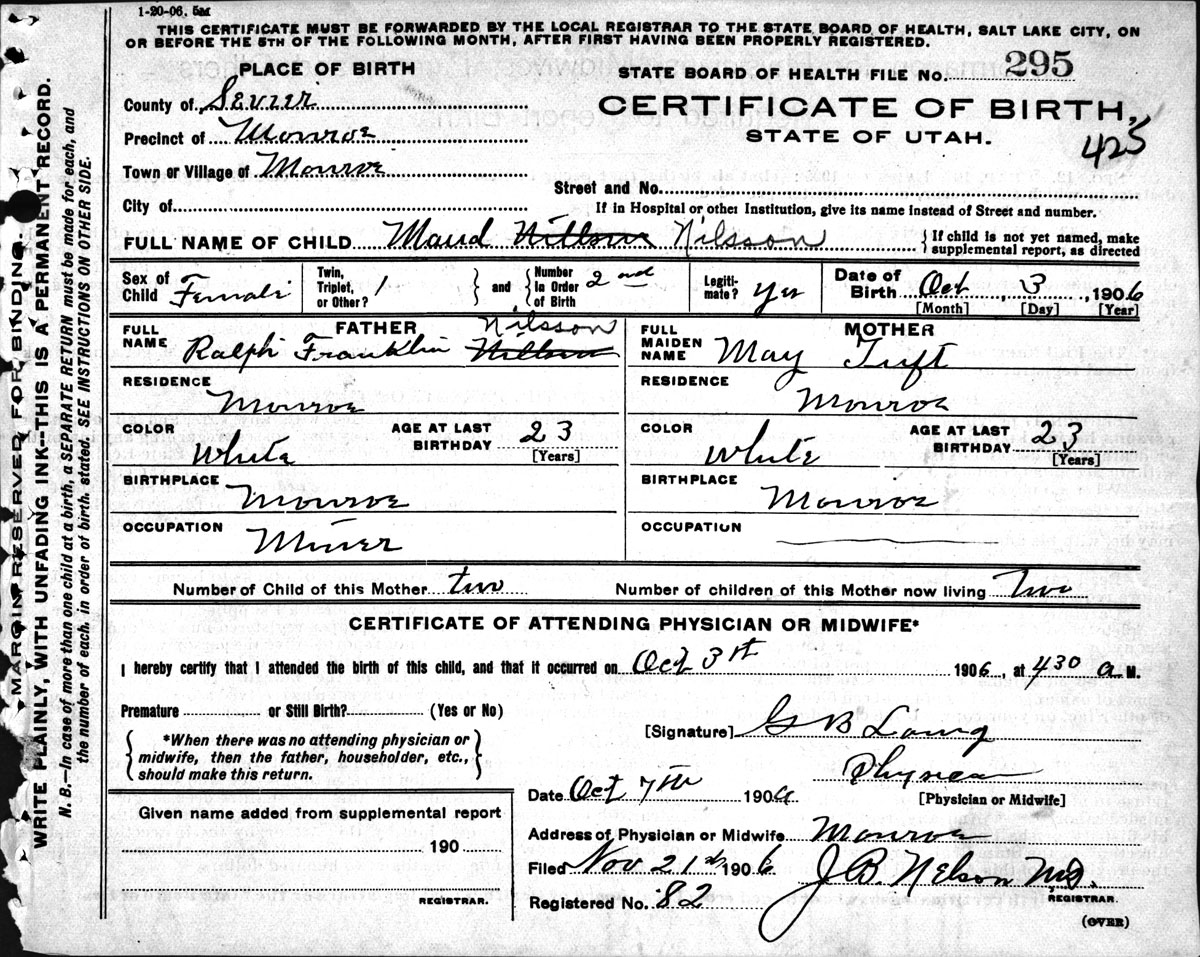 1-20-06. 5M
THIS CERTIFICATE MUST BE FORWARDED BY THE LOCAL REGISTRAR TO THE STATE BOARD OF HEALTH, SALT LAKE CITY, ON
OR BEFORE THE 5TH OF THE FOLLOWING MONTH, AFTER FIRST HAVING BEEN PROPERLY REGISTERED.
MARGIN RESERVED FOR BINDING.
WRITE PLAINLY, WITH UNFADING INK-THIS IS A PERMANENT RECORD.
N. B.—In case of more than one child at a birth, a SEPARATE RETURN must be made for each, and
the number of each, in order of birth, stated. SEE INSTRUCTIONS ON OTHER SIDE.
PLACE OF BIRTH
STATE BOARD OF HEALTH FILE No. 295
County of Sevier
CERTIFICATE OF BIRTH,
Precinct of Monroe
STATE OF UTAH.
425
Town or Village of Monroe
Street and No.
City of
If in Hospital or other Institution, give its name instead of Street and number.
FULL NAME OF CHILD Maud Nilsson { If child is not yet named, make
supplemental report, as directed
Sex of Child Female
Twin, Triplet, or Other? 1 } and { Number in Order of Birth 2nd
Legiti-mate? Yes
Date of Birth Oct 3, 1906
[Month] [Day] [Year]
FATHER
FULL NAME Ralph Franklin Nilsson
MOTHER
FULL MAIDEN NAME May Tuft
RESIDENCE Monroe
RESIDENCE Monroe
COLOR White AGE AT LAST BIRTHDAY 23 [Years]
COLOR White AGE AT LAST BIRTHDAY 23 [Years]
BIRTHPLACE Monroe
BIRTHPLACE Monroe
OCCUPATION Miner
OCCUPATION
Number of Child of this Mother two Number of children of this Mother now living Two
CERTIFICATE OF ATTENDING PHYSICIAN OR MIDWIFE*
I hereby certify that I attended the birth of this child, and that it occurred on Oct 3rd 1906, at 430 a M.
Premature or Still Birth? (Yes or No)
{ *When there was no attending physician or
midwife, then the father, householder, etc.,
should make this return. }
[Signature] G B Laing
Physician
[Physician or Midwife]
Date Oct 7th 190
Given name added from supplemental report
190
REGISTRAR.
Address of Physician or Midwife Monroe
Filed Nov 21 1906 J. B. Nelson M.D.
REGISTRAR.
Registered No. 82
(OVER)